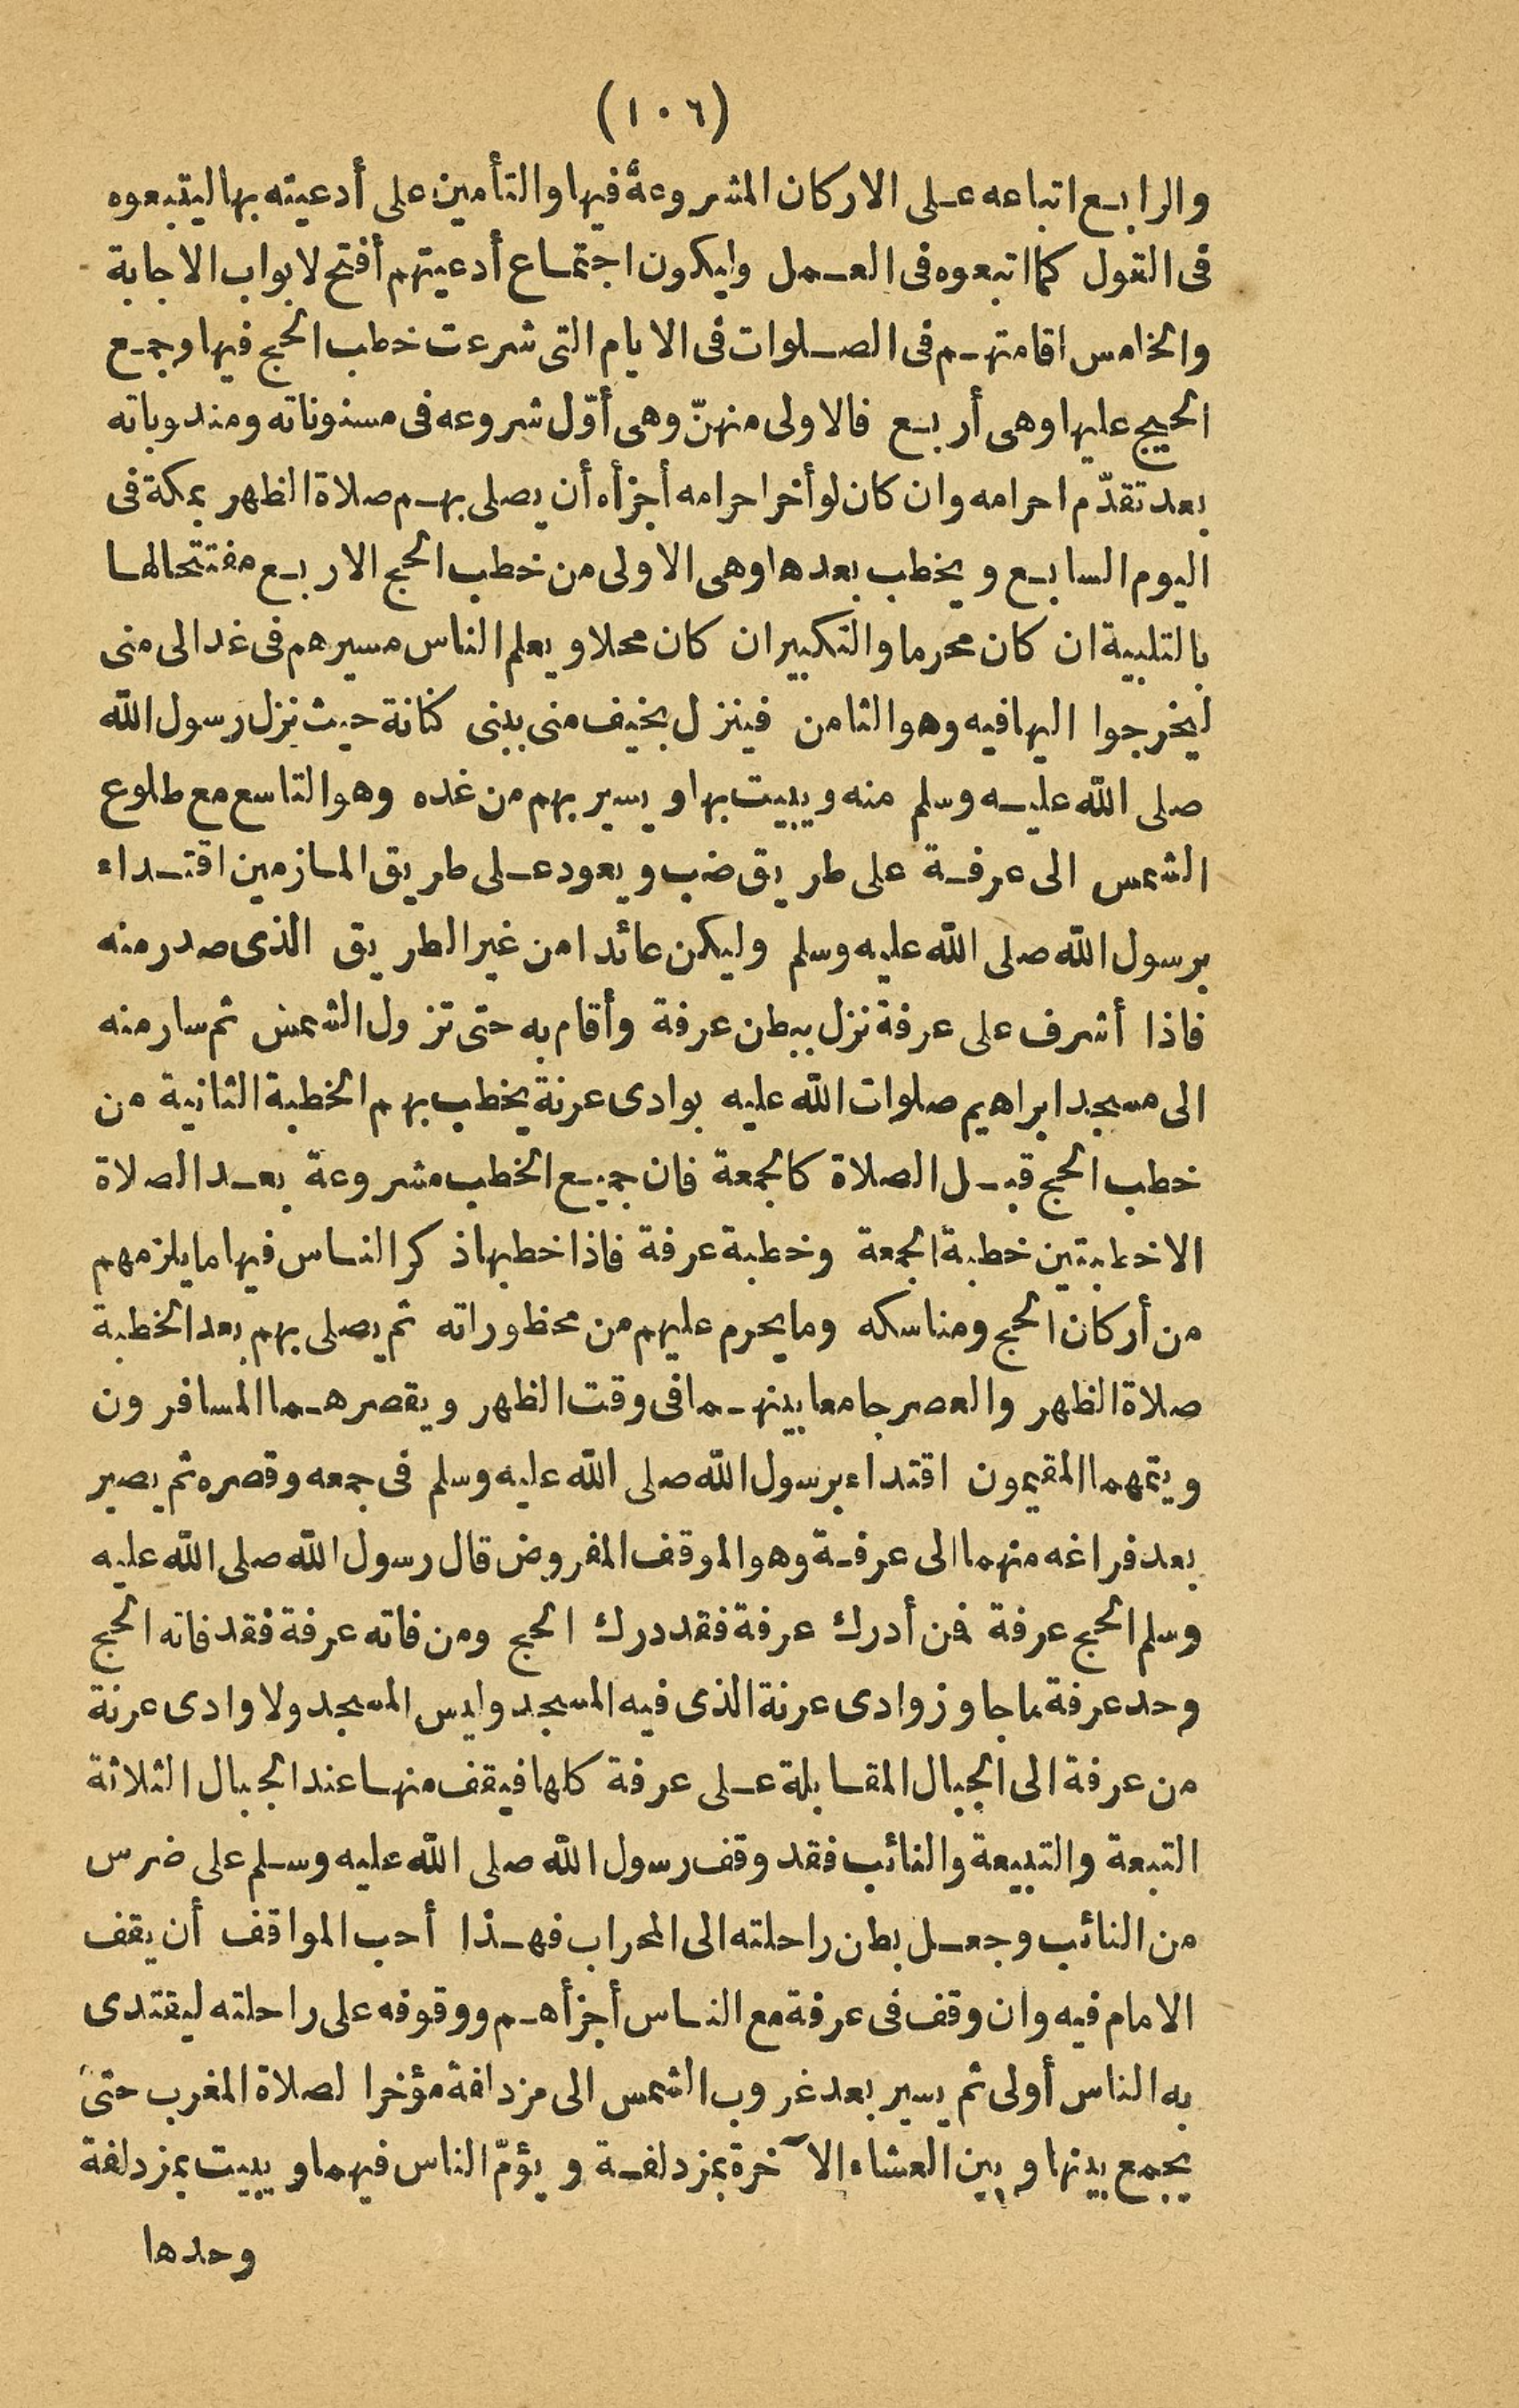 (١٠٦)
والرابع اتباعه على الاركان المشروعة فيها والتأمين على أدعيته بها ليتبعوه
فى القول كما اتبعوه فى العمل وليكون اجتماع أدعيتهم أفتح لابواب الاجابة
والخامس اقامتهم فى الصلوات فى الايام التى شرعت خطب الحج فيها وجمع
الحجيج عليها وهى أربع فالاولى منهنّ وهى أوّل شروعه فى مسنوناته ومندوباته
بعد تقدّم احرامه وان كان لو أخر احرامه أجزأه أن يصلى بهم صلاة الظهر بمكة فى
اليوم السابع ويخطب بعدها وهى الاولى من خطب الحج الاربع مفتتحا لها
بالتلبية ان كان محرما والتكبير ان كان محلا ويعلم الناس مسيرهم فى غد الى منى
ليخرجوا اليها فيه وهو الثامن فينزل بخيف منى ببنى كنانة حيث نزل رسول الله
صلى الله عليه وسلم منه ويبيت بها ويسير بهم من غده وهو التاسع مع طلوع
الشمس الى عرفة على طريق ضب ويعود على طريق المازمين اقتداء
برسول الله صلى الله عليه وسلم وليكن عائدا من غير الطريق الذى صدر منه
فاذا أشرف على عرفة نزل ببطن عرفة وأقام به حتى تزول الشمس ثم سار منه
الى مسجد ابراهيم صلوات الله عليه بوادى عرنة يخطب بهم الخطبة الثانية من
خطب الحج قبل الصلاة كالجمعة فان جميع الخطب مشروعة بعد الصلاة
الا خطبتين خطبة الجمعة وخطبة عرفة فاذا خطبها ذكر الناس فيها ما يلزمهم
من أركان الحج ومناسكه وما يحرم عليهم من محظوراته ثم يصلى بهم بعد الخطبة
صلاة الظهر والعصر جامعا بينهما فى وقت الظهر ويقصرهما المسافرون
ويتمهما المقيمون اقتداء برسول الله صلى الله عليه وسلم فى جمعه وقصره ثم يصير
بعد فراغه منهما الى عرفة وهو الموقف المفروض قال رسول الله صلى الله عليه
وسلم الحج عرفة فمن أدرك عرفة فقد درك الحج ومن فاته عرفة فقد فاته الحج
وحد عرفة ما جاوز وادى عرنة الذى فيه المسجد وليس المسجد ولا وادى عرنة
من عرفة الى الجبال المقابلة على عرفة كلها فيقف منها عند الجبال الثلاثة
التبعة والتبيعة والنائب فقد وقف رسول الله صلى الله عليه وسلم على ضرس
من النائب وجعل بطن راحلته الى المحراب فهذا أحب المواقف أن يقف
الامام فيه وان وقف فى عرفة مع الناس أجزأهم ووقوفه على راحلته ليقتدى
به الناس أولى ثم يسير بعد غروب الشمس الى مزدلفة مؤخرا لصلاة المغرب حتى
يجمع بينها وبين العشاء الآخرة بمزدلفة ويؤمّ الناس فيهما ويبيت بمزدلفة
وحدها